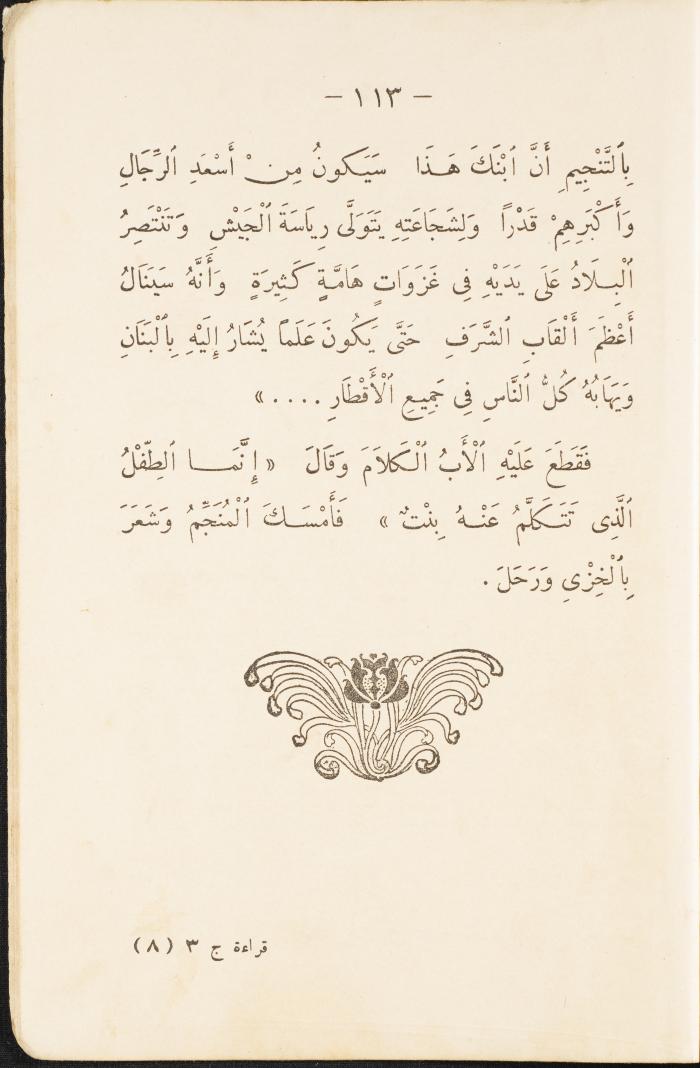 — ١١٣ —
بِٱلتَّنْجِيمِ أَنَّ ٱبْنَكَ هَـذَا سَيَكونُ مِنْ أَسْعَدِ ٱلرِّجَالِ
وَأَكْبَرِهِمْ قَدْرًا وَلِشَجَاعَتِهِ يَتَوَلَّى رِيَاسَةَ ٱلْجَيْشِ وَتَنْتَصِرُ
ٱلْبِـلَادُ عَلَى يَدَيْهِ فِى غَزَوَاتٍ هَامَّةٍ كَثِيرَةٍ وَأَنَّهُ سَيَنَالُ
أَعْظَمَ أَلْقَابِ ٱلشَّرَفِ حَتَّى يَكُونَ عَلَمًا يُشَارُ إِلَيْهِ بِٱلْبَنَانِ
وَيَهَابُهُ كُلُّ ٱلنَّاسِ فِى جَمِيعِ ٱلْأَقْطَارِ ....»
فَقَطَعَ عَلَيْهِ ٱلْأَبُ ٱلْـكَلَامَ وَقَالَ «إِنَّمَـا ٱلطِّفْلُ
ٱلَّذِى تَتَـكَلَّمُ عَنْـهُ بِنْتٌ» فَأَمْسَـكَ ٱلْمُنَجِّمُ وَشَعَرَ
بِٱلْخِزْىِ وَرَحَلَ .
قراءة ج ٣ (٨)